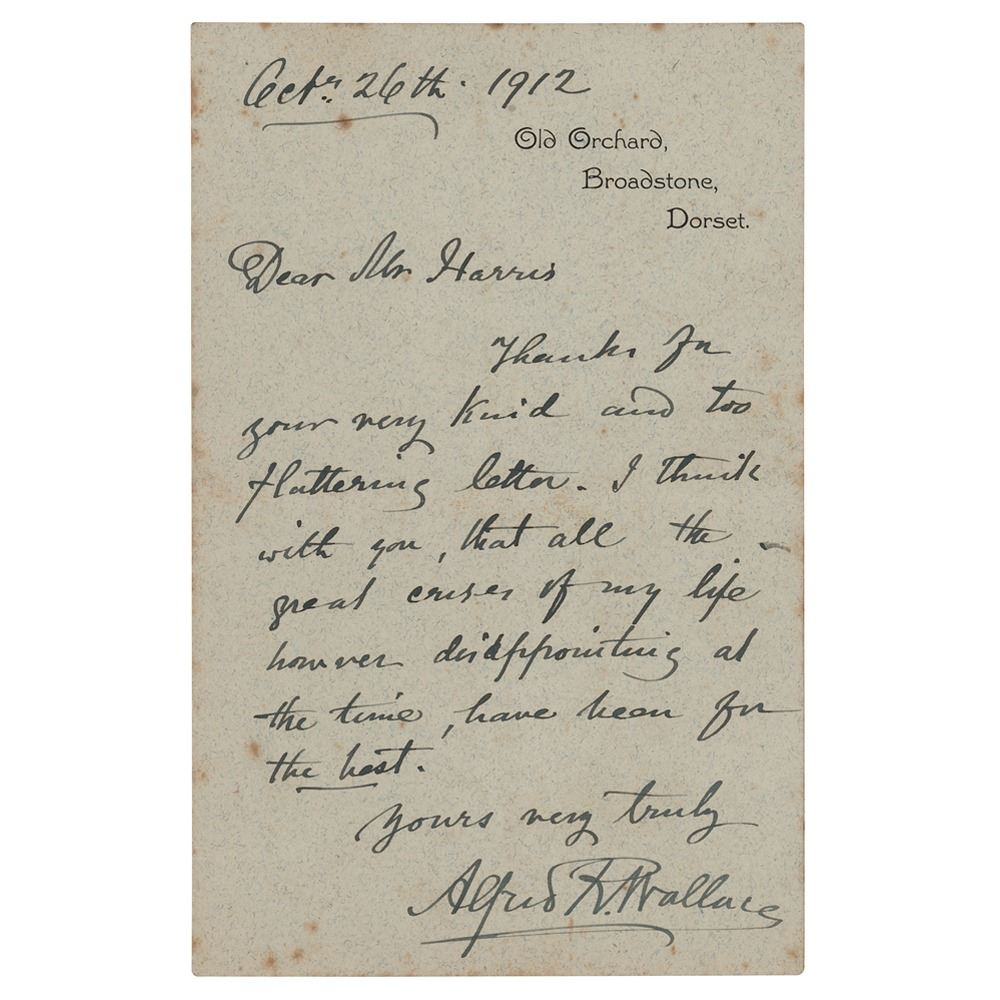 Octr. 26th. 1912
Old Orchard,
Broadstone,
Dorset.
Dear Mr Harris
Thanks for
your very kind and too
flattering letter. I think
with you, that all the
great crises of my life
however disappointing at
the time, have been for
the best.
Yours very truly
Alfred R. Wallace